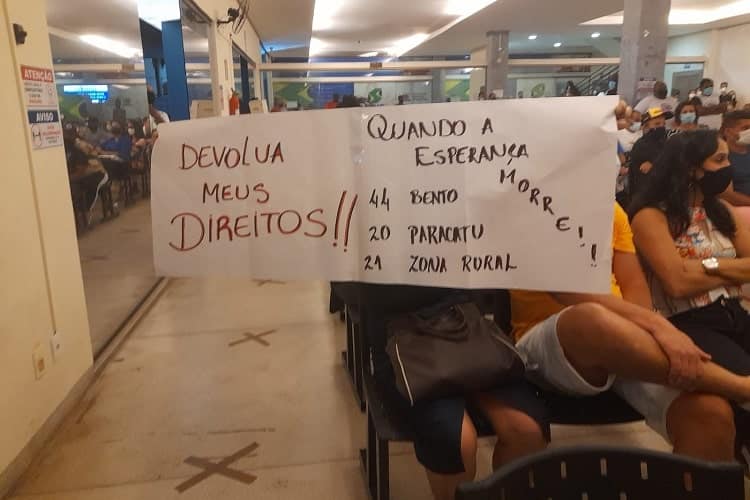 ATENÇÃO
AVISO
DEVOLUA
MEUS
DIREITOS!!
QUANDO A
ESPERANÇA
MORRE!!
44 BENTO
20 PARACATU
21 ZONA RURAL